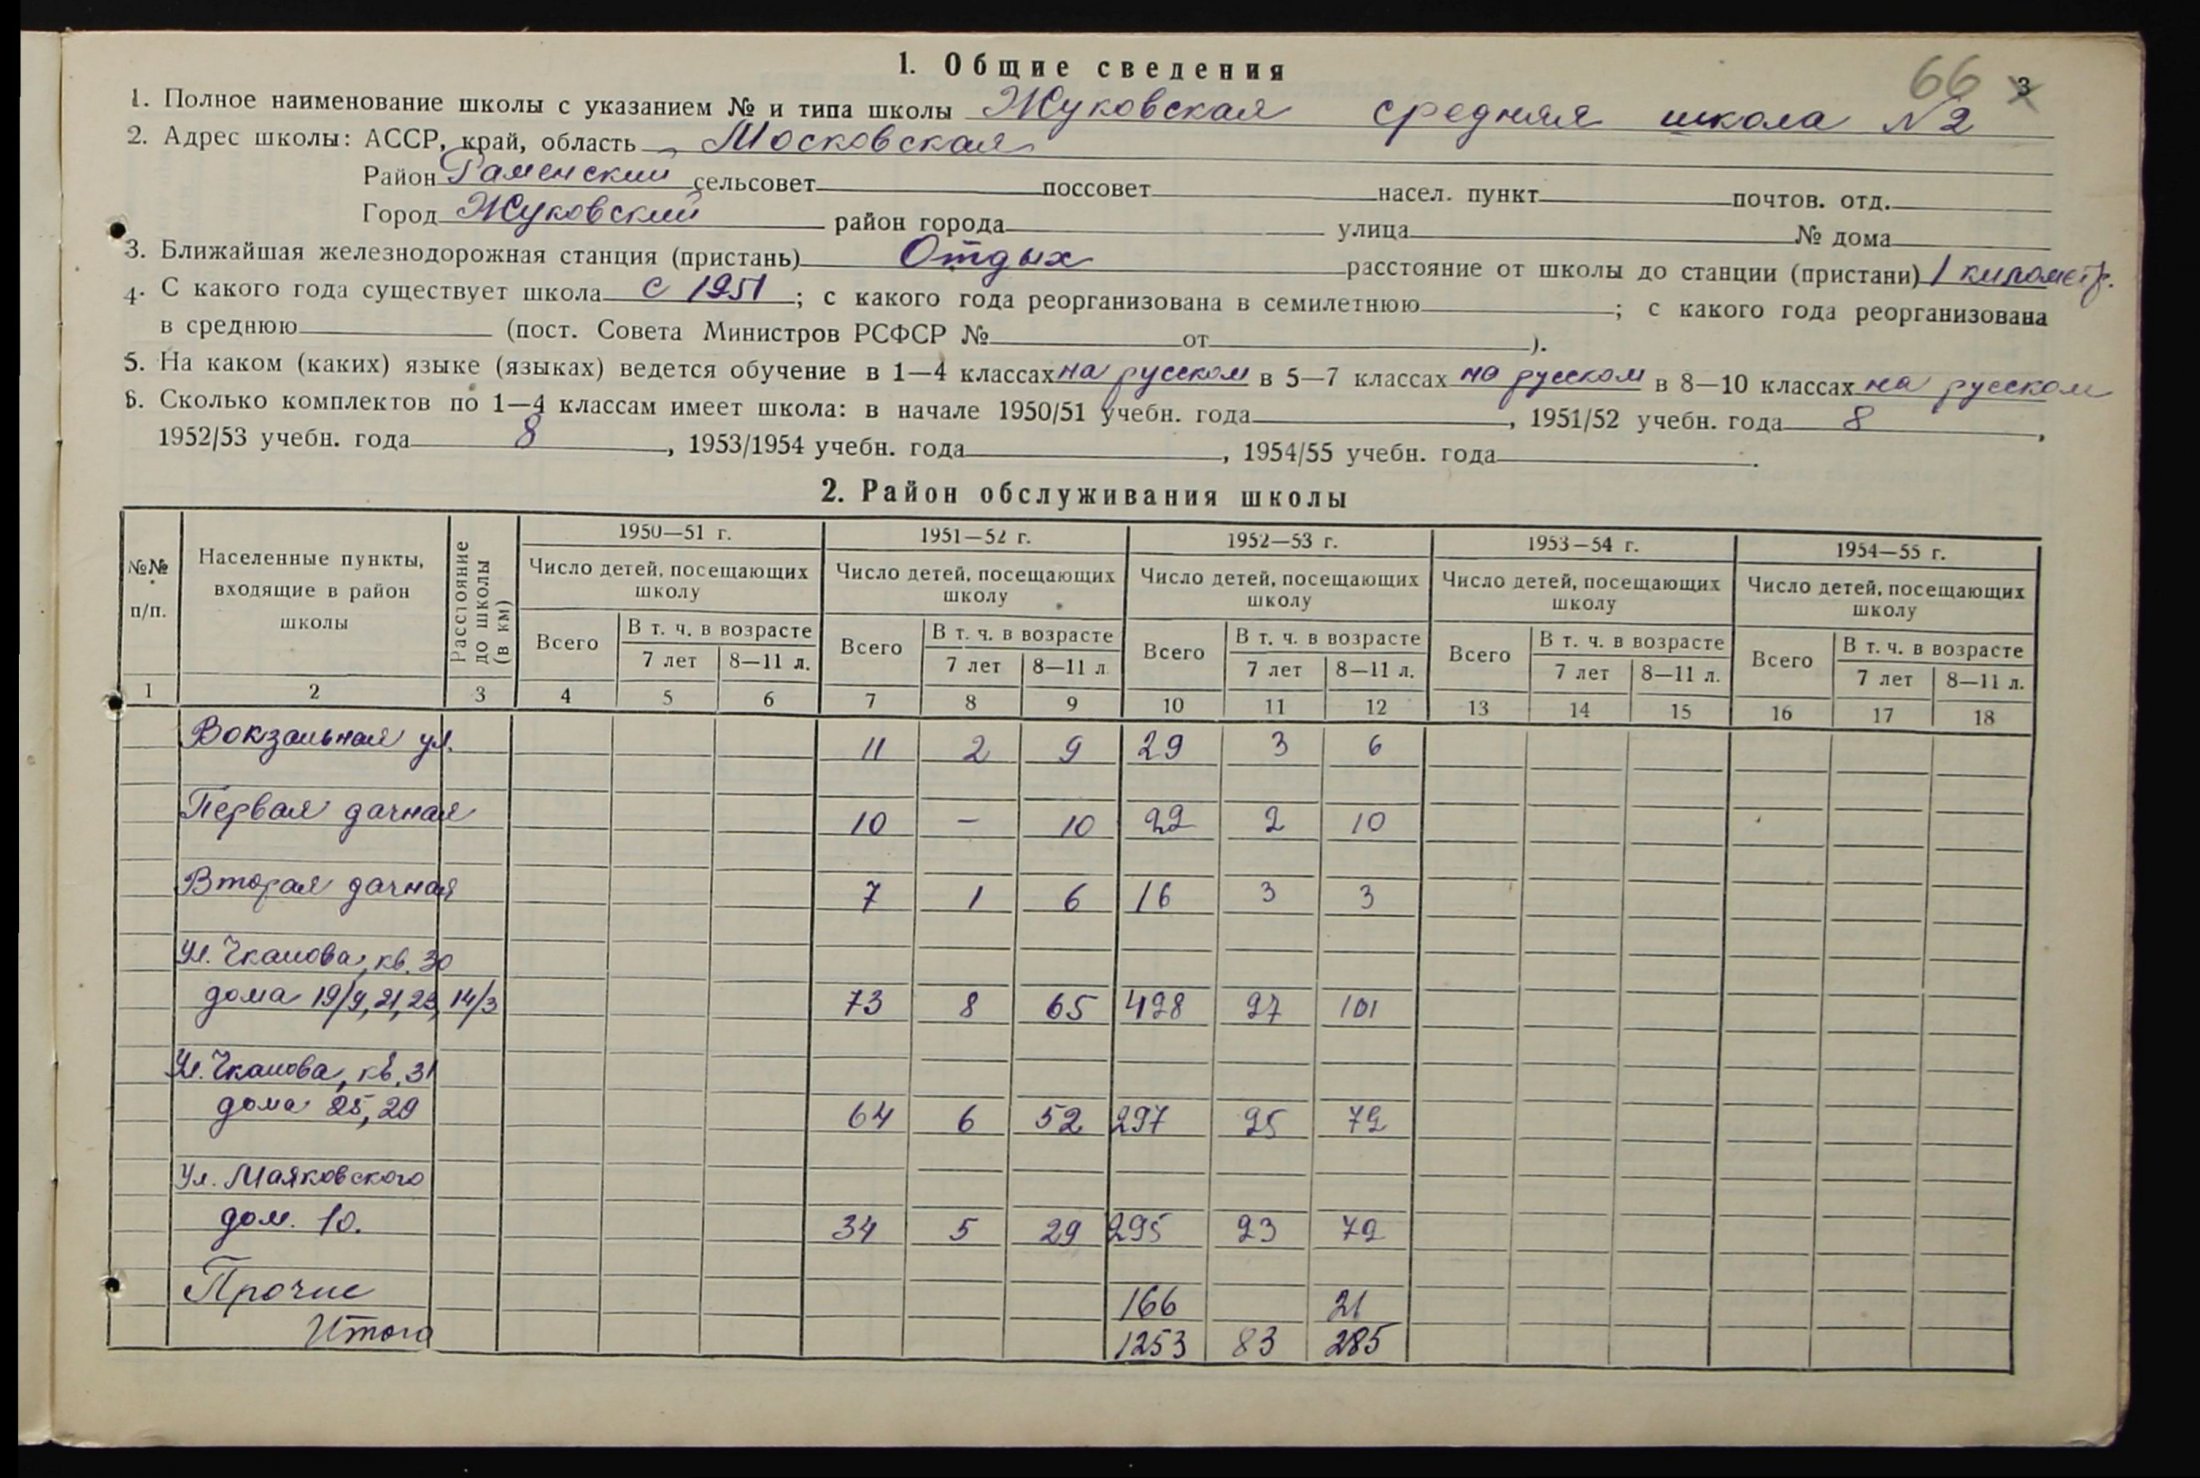 66 3
1. Общие сведения
1. Полное наименование школы с указанием № и типа школы Жуковская средняя школа №2
2. Адрес школы: АССР, край, область Московская
Район Раменский сельсовет поссовет насел. пункт почтов. отд.
Город Жуковский район города улица № дома
3. Ближайшая железнодорожная станция (пристань) Отдых расстояние от школы до станции (пристани) 1 километр.
4. С какого года существует школа с 1951; с какого года реорганизована в семилетнюю; с какого года реорганизована
в среднюю (пост. Совета Министров РСФСР № от ).
5. На каком (каких) языке (языках) ведется обучение в 1—4 классах на русском в 5—7 классах на русском в 8—10 классах на русском
6. Сколько комплектов по 1—4 классам имеет школа: в начале 1950/51 учебн. года, 1951/52 учебн. года 8,
1952/53 учебн. года 8, 1953/1954 учебн. года, 1954/55 учебн. года.
2. Район обслуживания школы
№№ п/п. Населенные пункты, входящие в район школы Расстояние до школы (в км) 1950—51 г. 1951—52 г. 1952—53 г. 1953—54 г. 1954—55 г.
Число детей, посещающих школу Число детей, посещающих школу Число детей, посещающих школу Число детей, посещающих школу Число детей, посещающих школу
Всего В т. ч. в возрасте Всего В т. ч. в возрасте Всего В т. ч. в возрасте Всего В т. ч. в возрасте Всего В т. ч. в возрасте
7 лет 8—11 л. 7 лет 8—11 л. 7 лет 8—11 л. 7 лет 8—11 л. 7 лет 8—11 л.
1 2 3 4 5 6 7 8 9 10 11 12 13 14 15 16 17 18
Вокзальная ул. 11 2 9 29 3 6
Первая дачная 10 — 10 22 2 10
Вторая дачная 7 1 6 16 3 3
Ул. Чкалова, кв. 30
дома 19/9, 21, 23, 14/3 73 8 65 428 27 101
Ул. Чкалова, кв. 31
дома 25, 29 64 6 52 297 25 72
Ул. Маяковского
дом. 10. 34 5 29 295 23 72
Прочие 166 21
Итого 1253 83 285